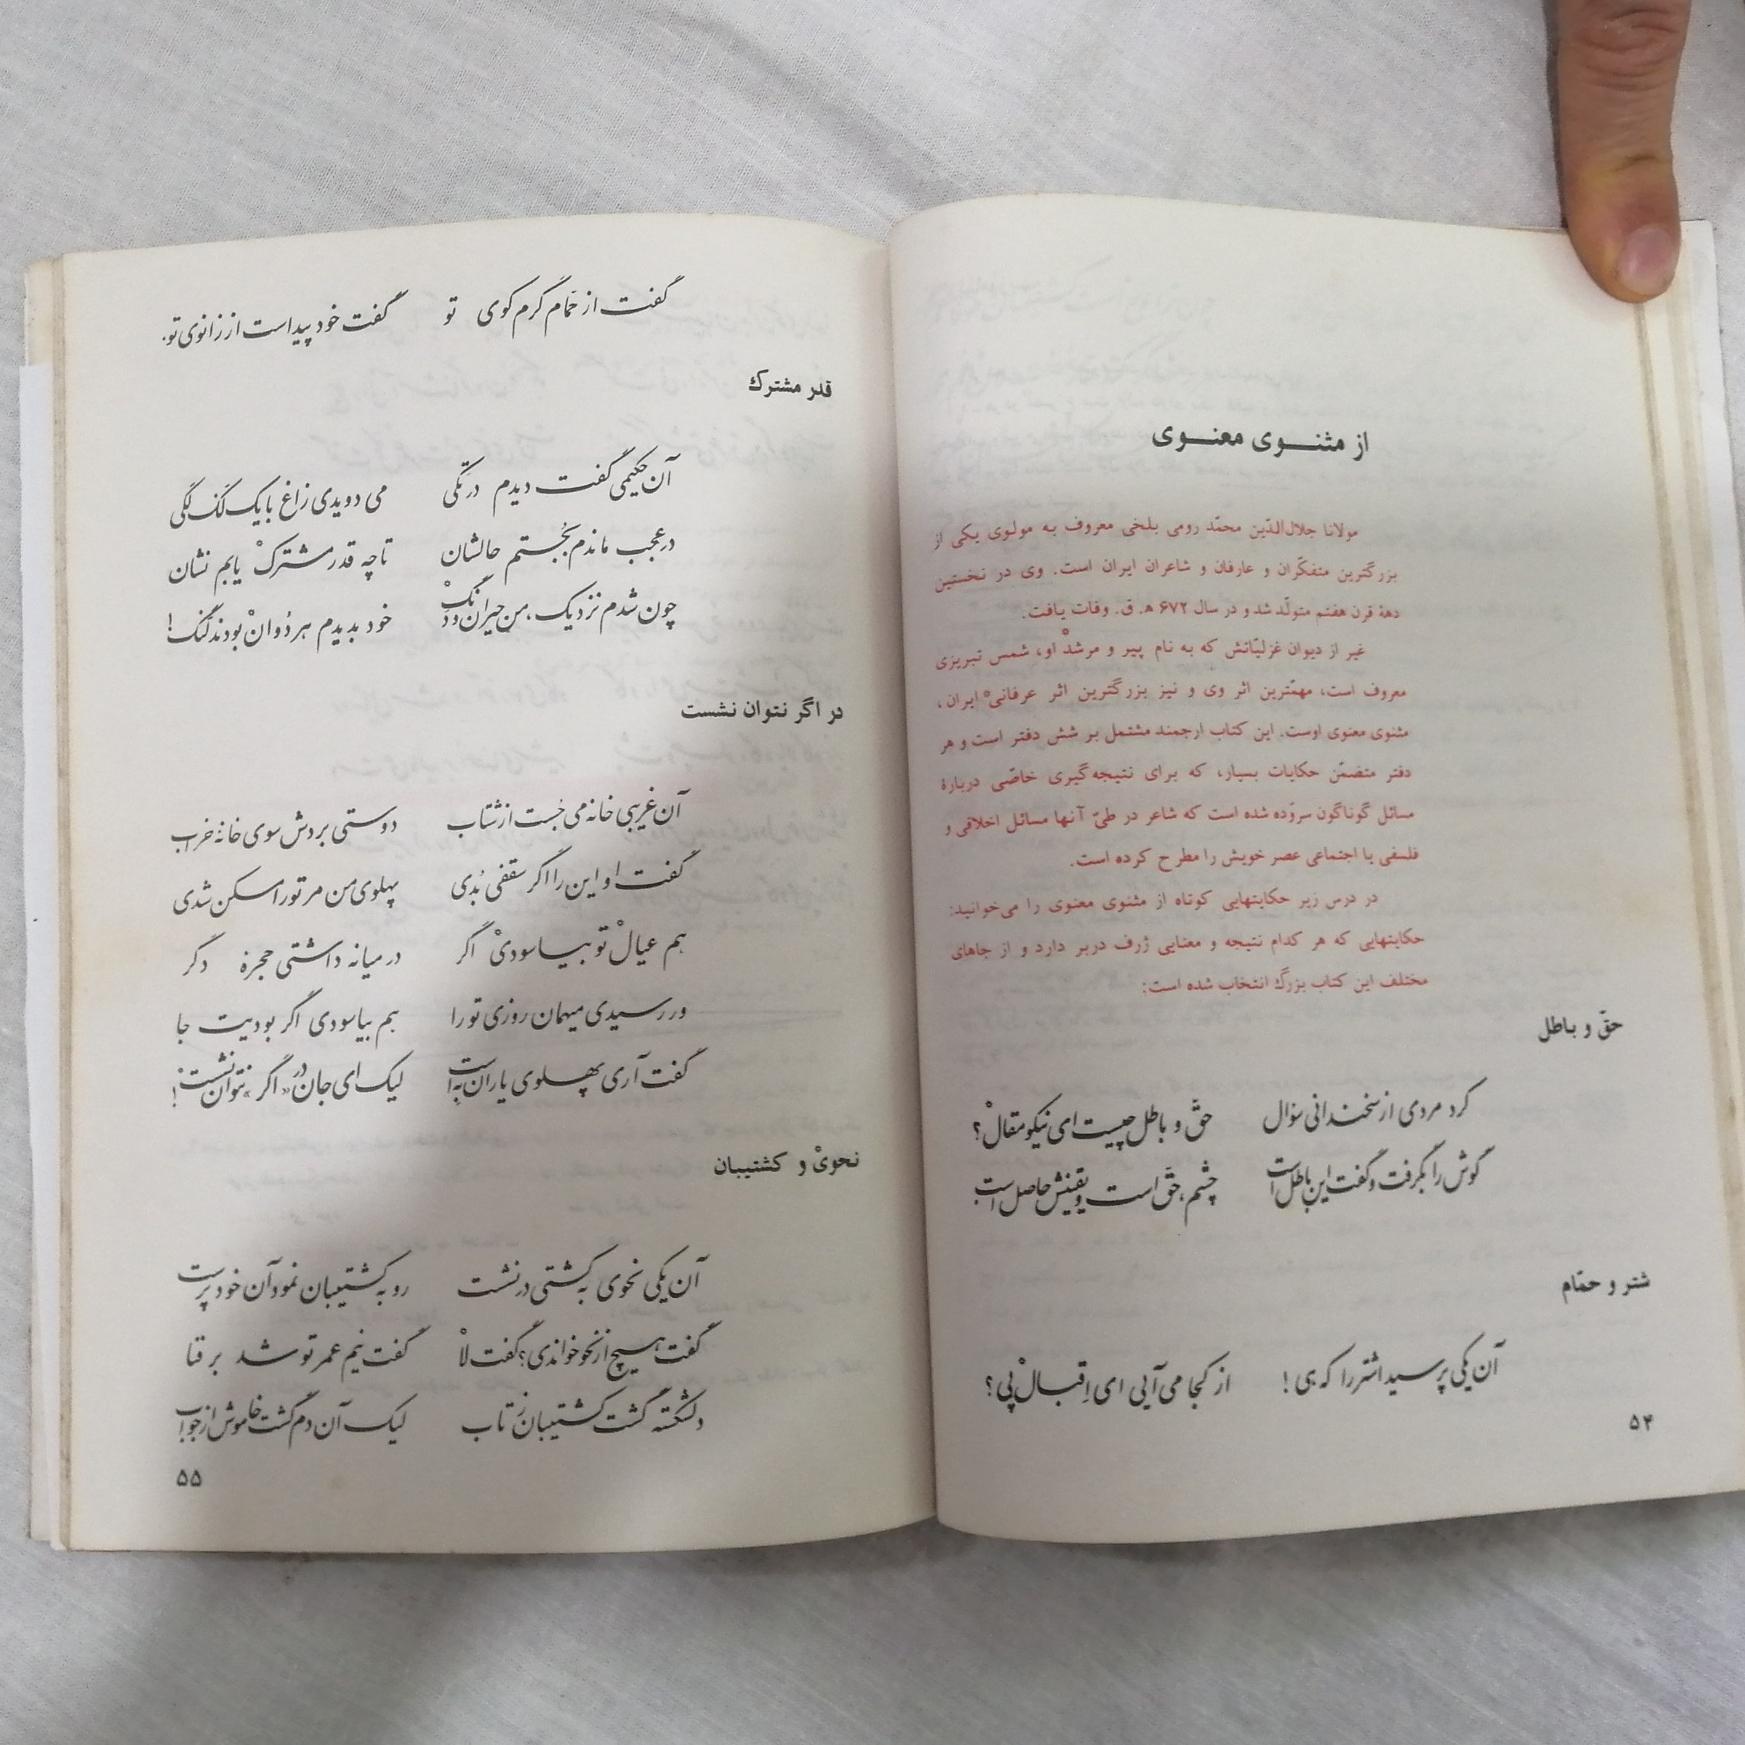 از مثنوی معنوی
مولانا جلال‌الدّین محمّد رومی بلخی معروف به مولوی یکی از
بزرگترین متفکّران و عارفان و شاعران ایران است. وی در نخستین
دههٔ قرن هفتم متولّد شد و در سال ۶۷۲ ه. ق. وفات یافت.
غیر از دیوان غزلیّاتش که به نام پیر و مرشدْ او، شمس تبریزی
معروف است، مهمّترین اثر وی و نیز بزرگترین اثر عرفانیْ ایران،
مثنوی معنوی اوست. این کتاب ارجمند مشتمل بر شش دفتر است و هر
دفتر متضمّن حکایات بسیار، که برای نتیجه‌گیری خاصّی دربارهٔ
مسائل گوناگون سروده شده است که شاعر در طیّ آنها مسائل اخلاقی و
فلسفی یا اجتماعی عصر خویش را مطرح کرده است.
در درس زیر حکایتهایی کوتاه از مثنوی معنوی را می‌خوانید:
حکایتهایی که هر کدام نتیجه و معنایی ژرف دربر دارد و از جاهای
مختلف این کتاب بزرگ انتخاب شده است:
حقّ و باطل
کرد مردی از سخندانی سؤال حقّ و باطل چیست ای نیکو مقالْ؟
گوش را بگرفت و گفت این باطل است چشم، حقّ است و یقینش حاصل است
شتر و حمّام
آن یکی پرسید اشتر را که هی! از کجا می‌آیی ای اِقبالْ پی؟
۵۴
گفت از حمّام گرم کوی تو گفت خود پیداست از زانوی تو.
قدر مشترک
آن حکیمی گفت دیدم در تگی می دویدی زاغ با یک لگلگی
در عجب ماندم بجُستم حالشان تا چه قدر مشترکْ یابم نشان
چون شدم نزدیک، من حیران و دنگْ خود بدیدم هر دُوانْ بودند لنگ!
در اگر نتوان نشست
آن غریبی خانه می جُست از شتاب دوستی بردش سوی خانهٔ خراب
گفت او این را اگر سقفی بُدی پهلوی من مر تو را مسکن شدی
هم عیالْ تو بیاسودیْ اگر در میانه داشتی حجرهٔ دگر
ور رسیدی میهمان روزی تو را هم بیاسودی اگر بودیت جا
گفت آری پهلوی یاران بِه است لیک ای جان در «اگر» نتوان نشست!
نحویْ و کشتیبان
آن یکی نحوی به کشتی در نشست رو به کشتیبان نمود آن خود پرست
گفت هیچ از نحو خواندی؟ گفت لاْ گفت نیم عمر تو شد بر فنا
دلشکسته گشت کشتیبان ز تاب لیک آن دم گشت خاموش از جواب
۵۵